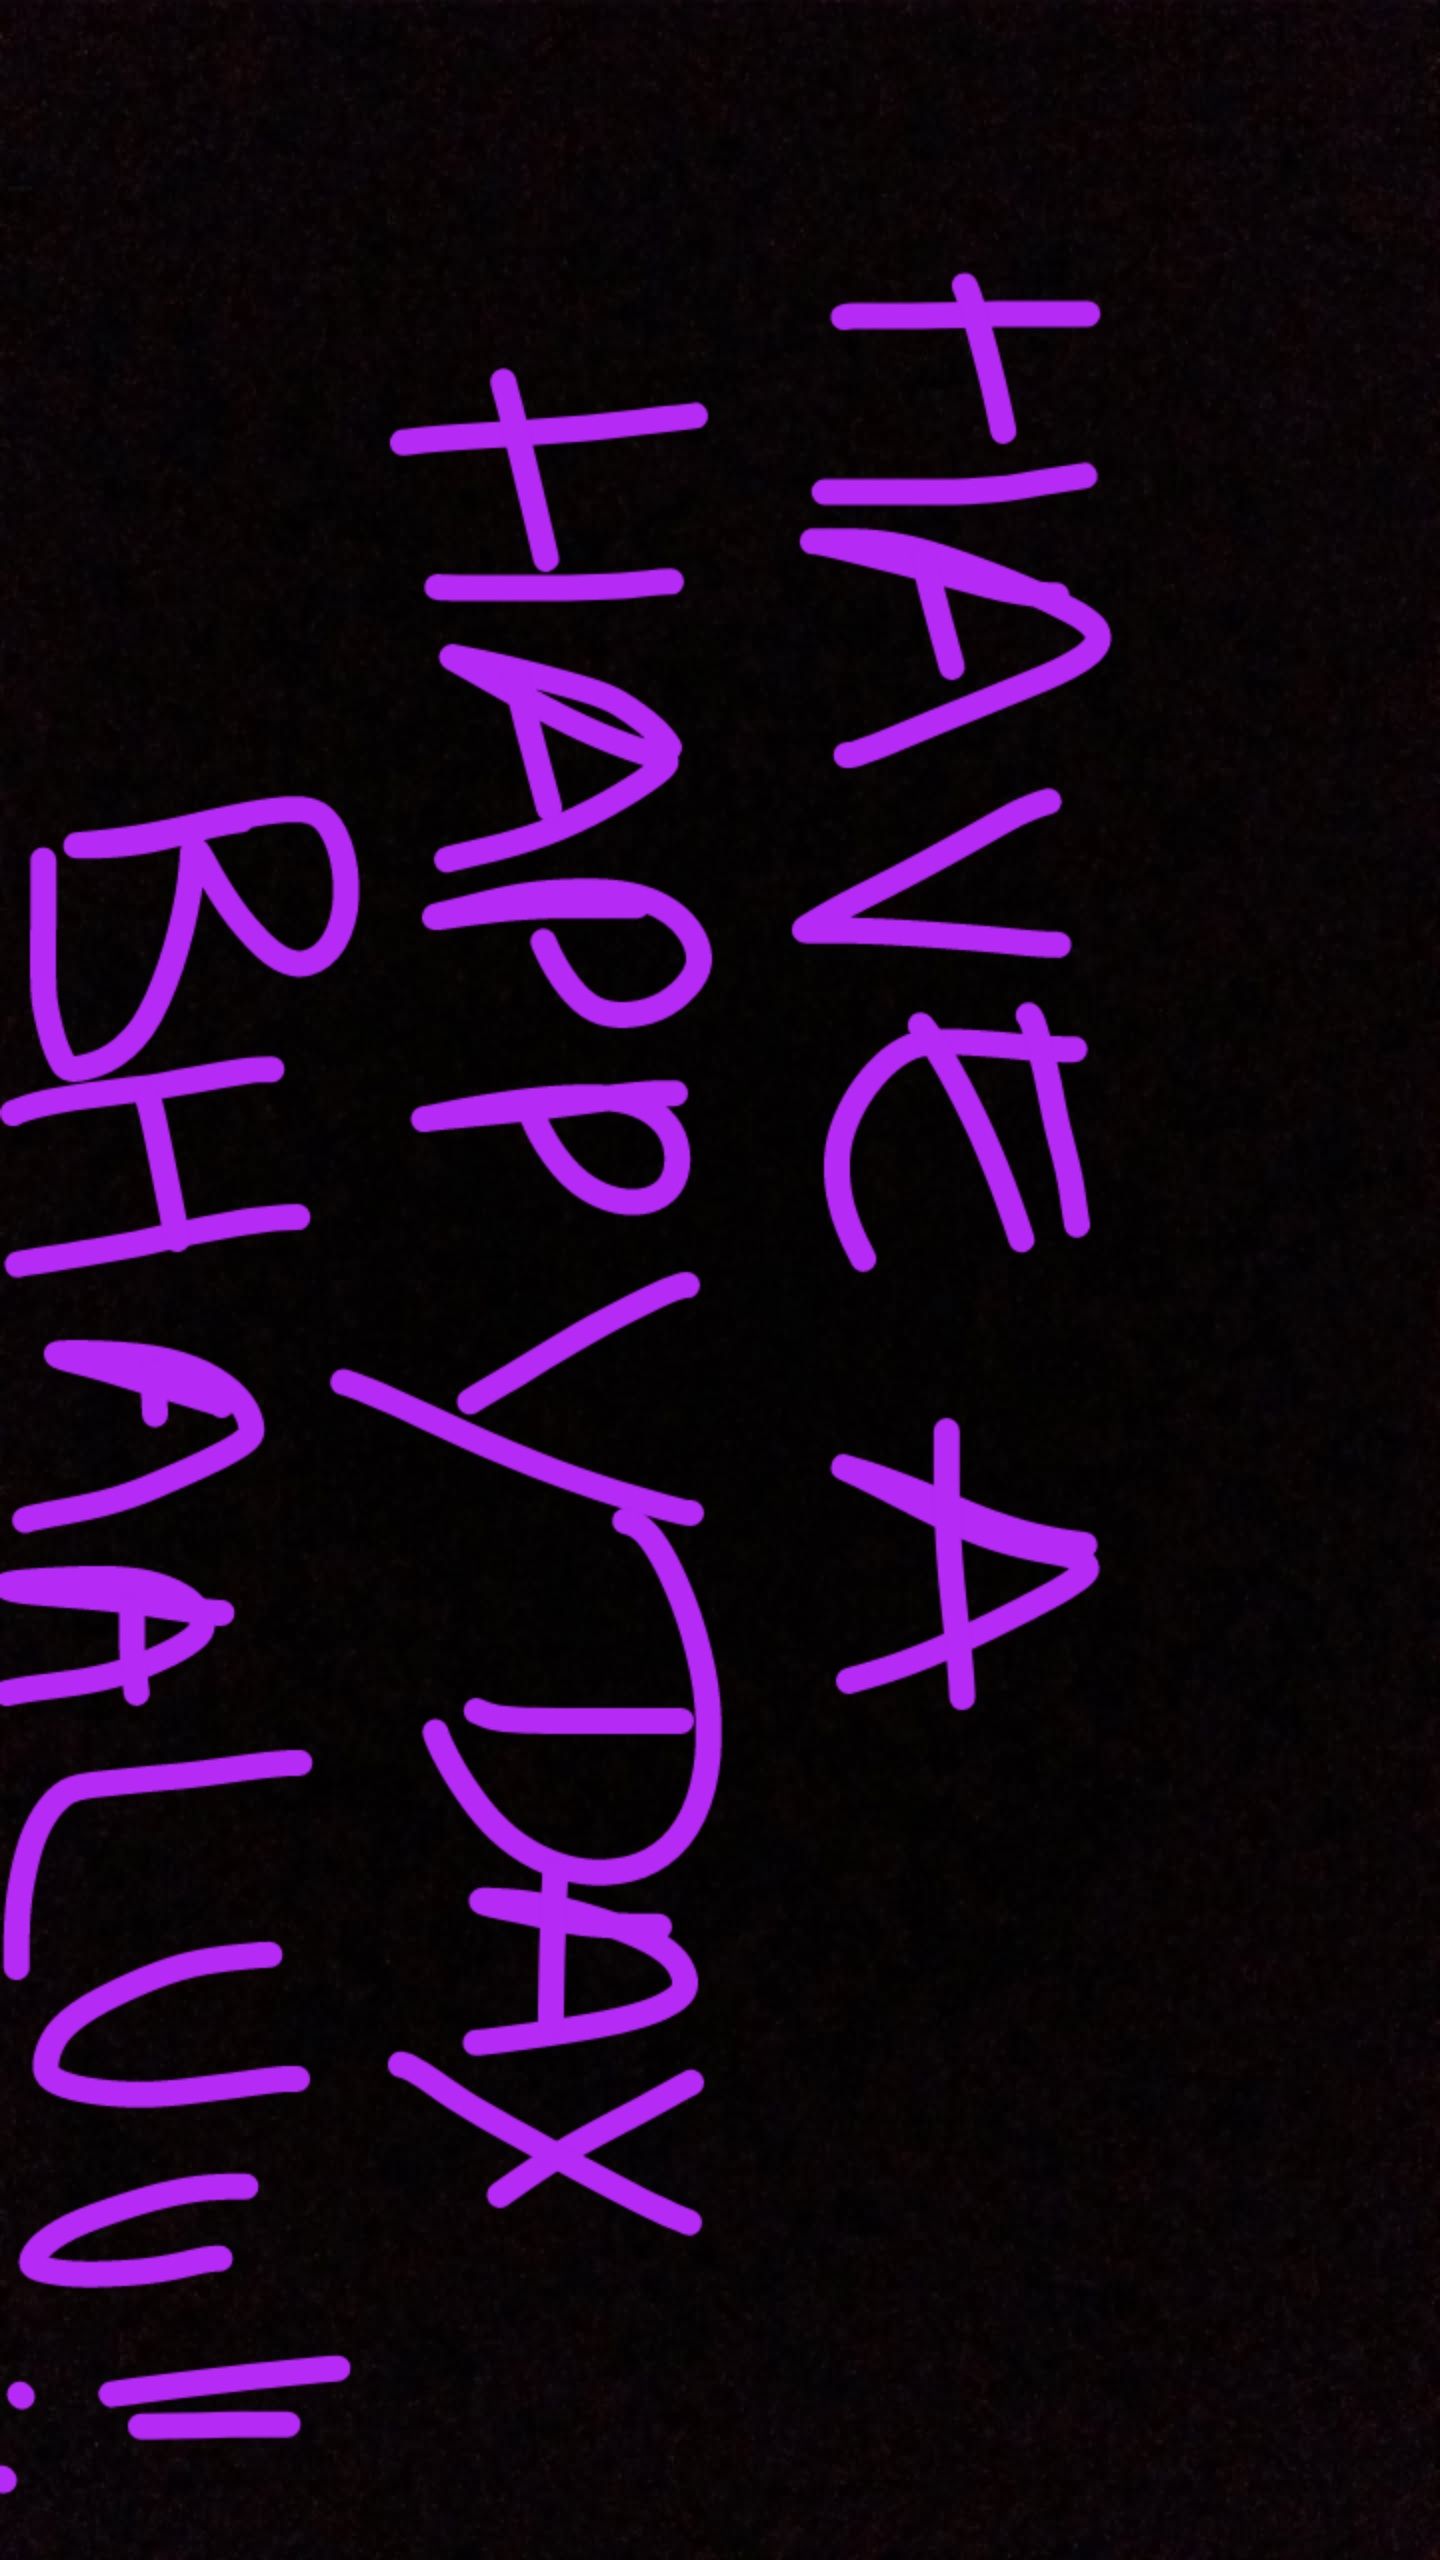 HAVE A
HAPPY DAY
BHAALUU!!